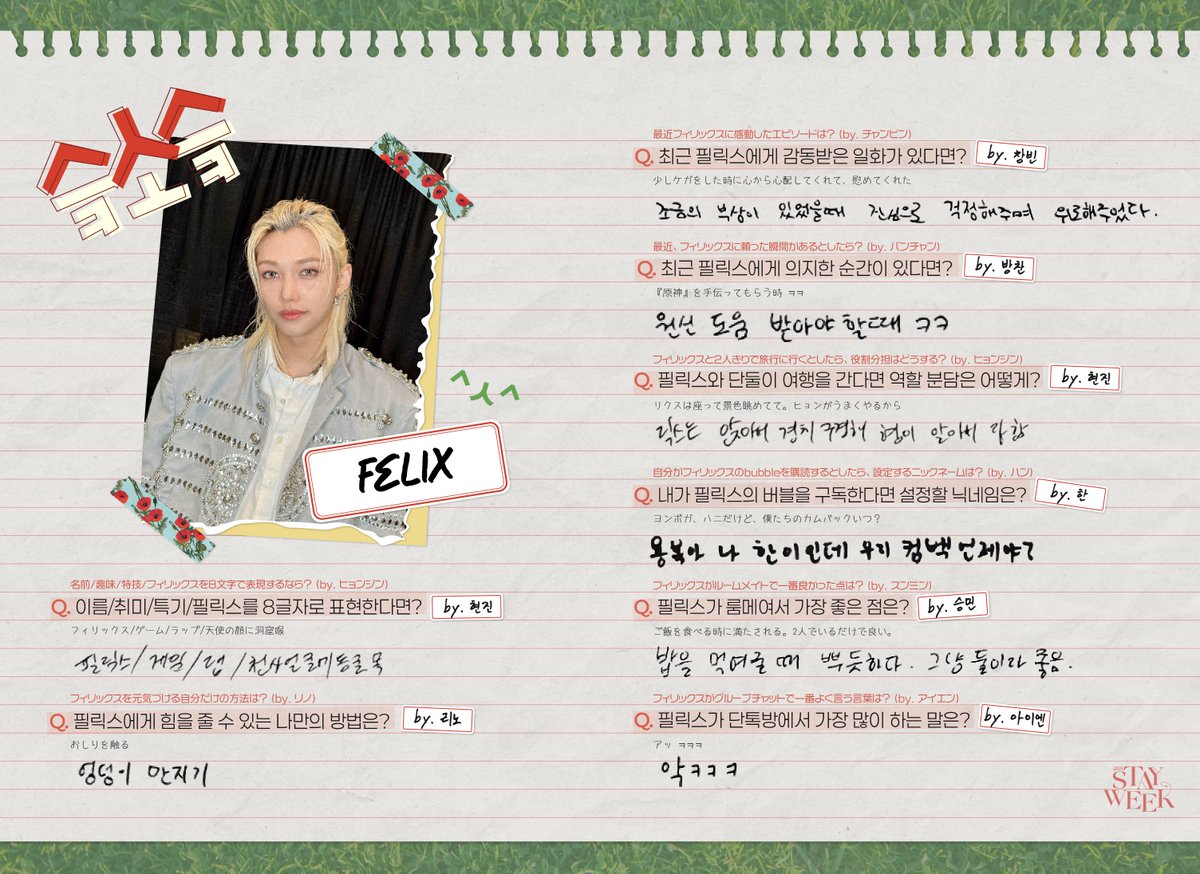 FELIX
名前/趣味/特技/フィリックスを8文字で表現するなら? (by. ヒョンジン)
Q. 이름/취미/특기/필릭스를 8글자로 표현한다면? by. 현진
フィリックス/ゲーム/ラップ/天使の顔に洞窟喉
필릭스/게임/랩/천사얼굴에동굴목
フィリックスを元気づける自分だけの方法は? (by. リノ)
Q. 필릭스에게 힘을 줄 수 있는 나만의 방법은? by. 리노
おしりを触る
엉덩이 만지기
最近フィリックスに感動したエピソードは? (by. チャンビン)
Q. 최근 필릭스에게 감동받은 일화가 있다면? by. 창빈
少しケガをした時に心から心配してくれて、慰めてくれた
조금의 부상이 있었을때 진심으로 걱정해주며 위로해주었다.
最近、フィリックスに頼った瞬間があるとしたら? (by. バンチャン)
Q. 최근 필릭스에게 의지한 순간이 있다면? by. 방찬
『原神』を手伝ってもらう時 ㅋㅋ
원신 도움 받아야 할때 ㅋㅋ
フィリックスと2人きりで旅行に行くとしたら、役割分担はどうする? (by. ヒョンジン)
Q. 필릭스와 단둘이 여행을 간다면 역할 분담은 어떻게? by. 현진
リクスは座って景色眺めてて。ヒョンがうまくやるから
릭스는 앉아서 경치 구경해 형이 알아서 다 함
自分がフィリックスのbubbleを購読するとしたら、設定するニックネームは? (by. ハン)
Q. 내가 필릭스의 버블을 구독한다면 설정할 닉네임은? by. 한
ヨンボガ、ハニだけど、僕たちのカムバックいつ?
용복아 나 한이인데 우리 컴백 언제야?
フィリックスがルームメイトで一番良かった点は? (by. スンミン)
Q. 필릭스가 룸메여서 가장 좋은 점은? by. 승민
ご飯を食べる時に満たされる。2人でいるだけで良い。
밥을 먹여줄 때 뿌듯하다. 그냥 둘이라 좋음.
フィリックスがグループチャットで一番よく言う言葉は? (by. アイエン)
Q. 필릭스가 단톡방에서 가장 많이 하는 말은? by. 아이엔
アッ ㅋㅋㅋ
악ㅋㅋㅋ
STAY
WEEK